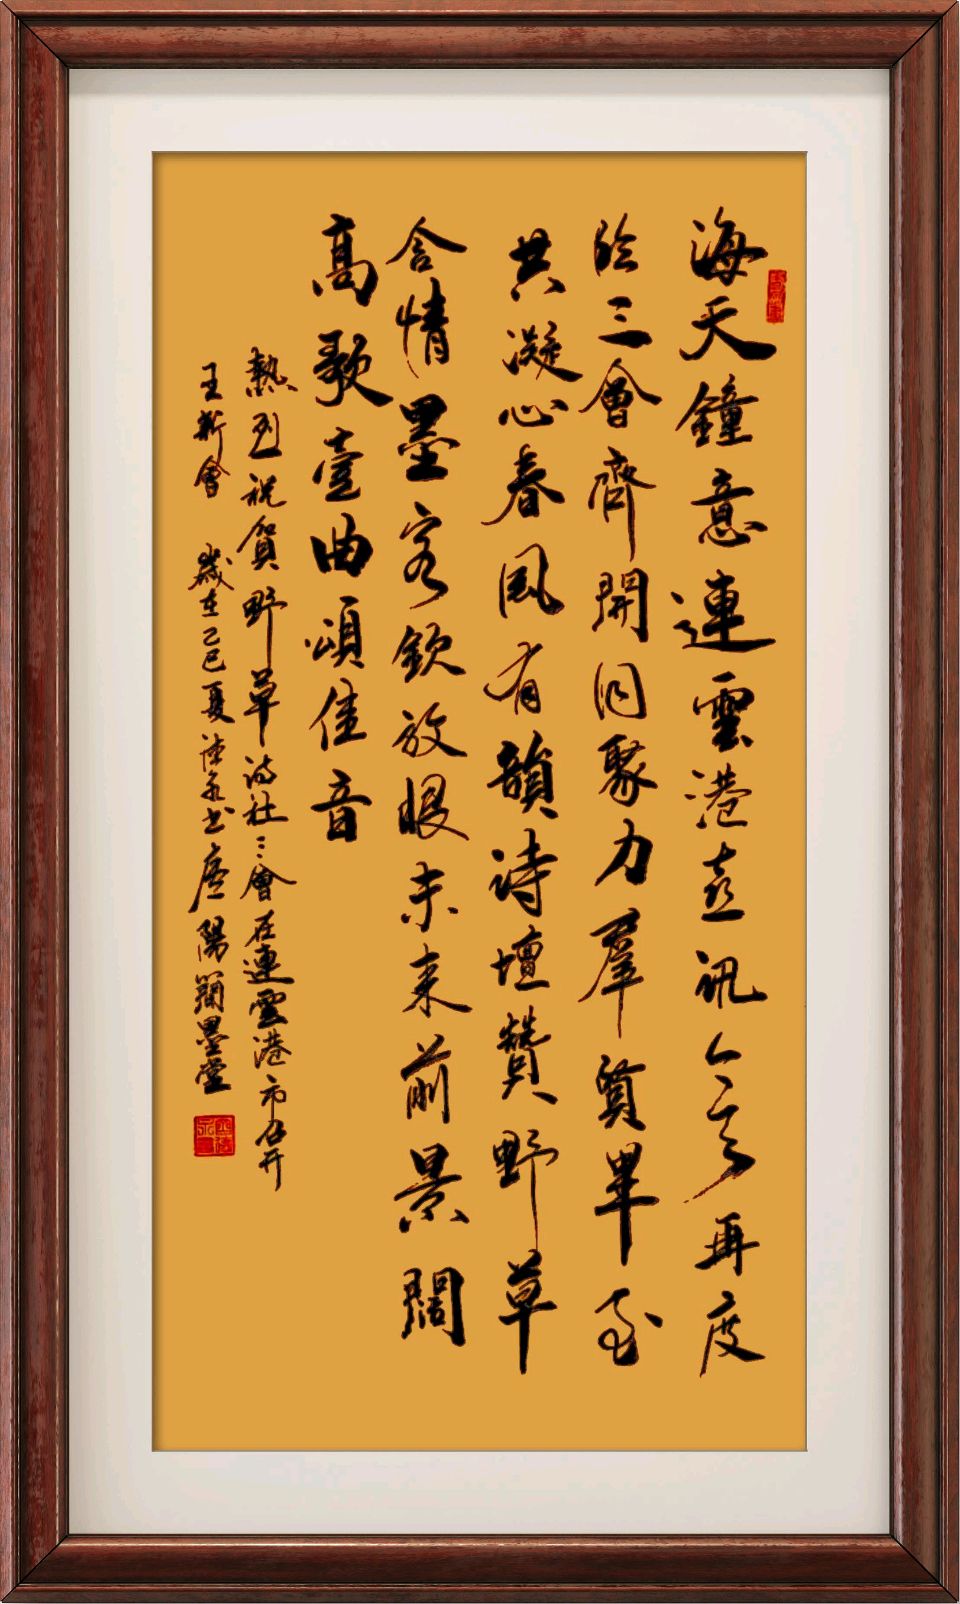 海天鐘意連雲港喜訊今再度
臨三會齊開同聚力羣賢畢至
共凝心春風有韻詩壇贊野草
含情墨客欽放眼未來前景闊
高歌壹曲頌佳音
熱烈祝賀野草詩社三會在連雲港市召开
王新會 歲在乙巳夏书陽墨堂